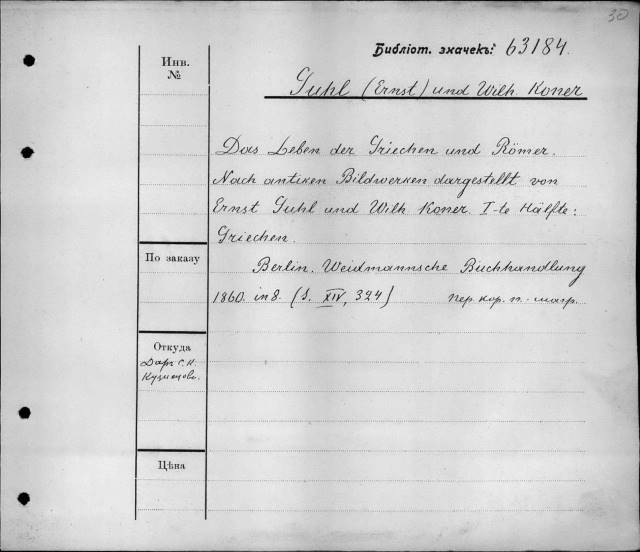 30
Библіот. значекъ: 63184.
Инв.
№
Guhl (Ernst) und Wilh. Koner
Das Leben der Griechen und Römer.
Nach antiken Bildwerken dargestellt von
Ernst Guhl und Wilh. Koner. I-te Hälfte:
Griechen.
По заказу
Berlin. Weidmannsche Buchhandlung
1860. in 8. (S. XIV, 324)
пер. кор. п.
Откуда
Даръ С. К.
Кузнецова.
Цѣна